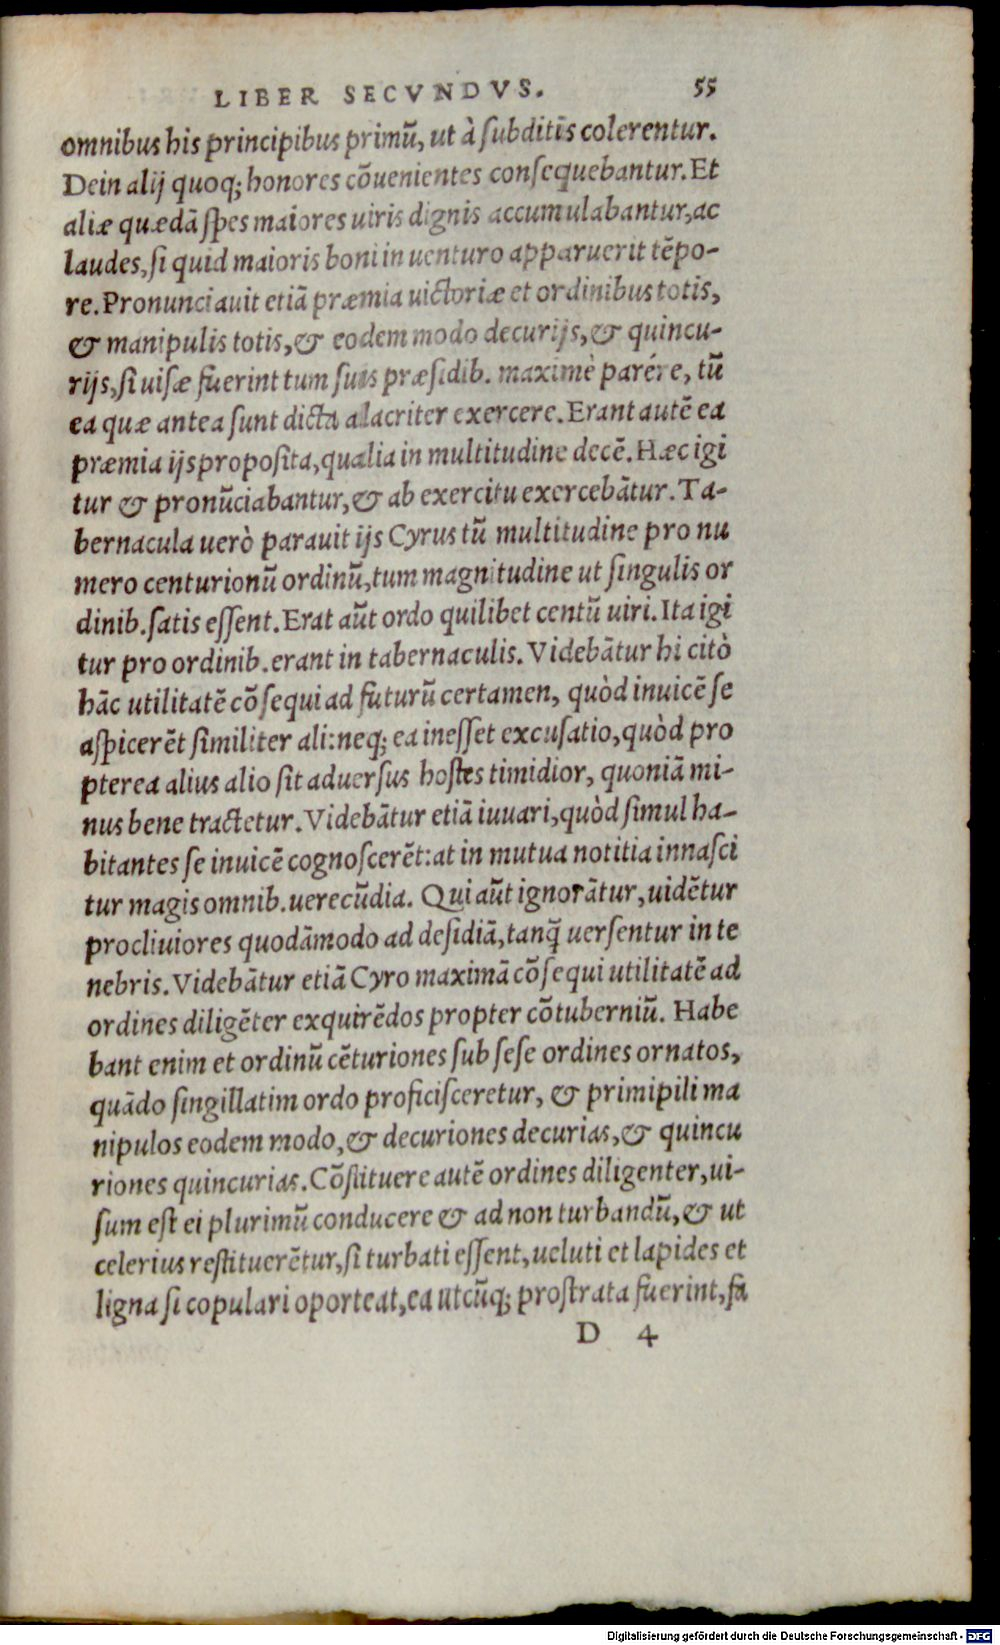 LIBER SECVNDVS. 55
omnibus his principibus primũ, ut à ſubditis colerentur.
Dein alij quoq; honores cõuenientes conſequebantur. Et
aliæ quædã ſpes maiores uiris dignis accumulabantur, ac
laudes, ſi quid maioris boni in uenturo apparuerit tẽpo-
re. Pronunciauit etiã præmia uictoriæ et ordinibus totis,
& manipulis totis, & eodem modo decurijs, & quincu-
rijs, ſi uiſæ fuerint tum ſuis præſidib. maximè parére, tũ
ea quæ antea ſunt dicta alacriter exercere. Erant autẽ ea
præmia ijs propoſita, qualia in multitudine decẽ. Hæc igi
tur & pronũciabantur, & ab exercitu exercebãtur. Ta-
bernacula uerò parauit ijs Cyrus tũ multitudine pro nu
mero centurionũ ordinũ, tum magnitudine ut ſingulis or
dinib. ſatis eſſent. Erat aũt ordo quilibet centũ uiri. Ita igi
tur pro ordinib. erant in tabernaculis. Videbãtur hi citò
hãc utilitatẽ cõſequi ad futurũ certamen, quòd inuicẽ ſe
aſpicerẽt ſimiliter ali: neq; ea ineſſet excuſatio, quòd pro
pterea alius alio ſit aduerſus hoſtes timidior, quoniã mi-
nus bene tractetur. Videbãtur etiã iuuari, quòd ſimul ha-
bitantes ſe inuicẽ cognoſcerẽt: at in mutua notitia innaſci
tur magis omnib. uerecũdia. Qui aũt ignorãtur, uidẽtur
procliuiores quodãmodo ad deſidiã, tanq̃ uerſentur in te
nebris. Videbãtur etiã Cyro maximã cõſequi utilitatẽ ad
ordines diligẽter exquirẽdos propter cõtuberniũ. Habe
bant enim et ordinũ cẽturiones ſub ſeſe ordines ornatos,
quãdo ſingillatim ordo proficiſceretur, & primipili ma
nipulos eodem modo, & decuriones decurias, & quincu
riones quincurias. Cõſtituere autẽ ordines diligenter, ui-
ſum eſt ei plurimũ conducere & ad non turbandũ, & ut
celerius reſtituerẽtur, ſi turbati eſſent, ueluti et lapides et
ligna ſi copulari oporteat, ea utcũq; proſtrata fuerint, fa
D 4
Digitalisierung gefördert durch die Deutsche Forschungsgemeinschaft - DFG